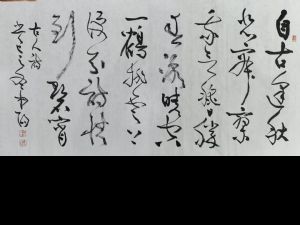 自古逢秋
悲寂寥
我言秋日勝
春朝晴空
一鶴排雲上
便引詩情
到碧霄
古人詩